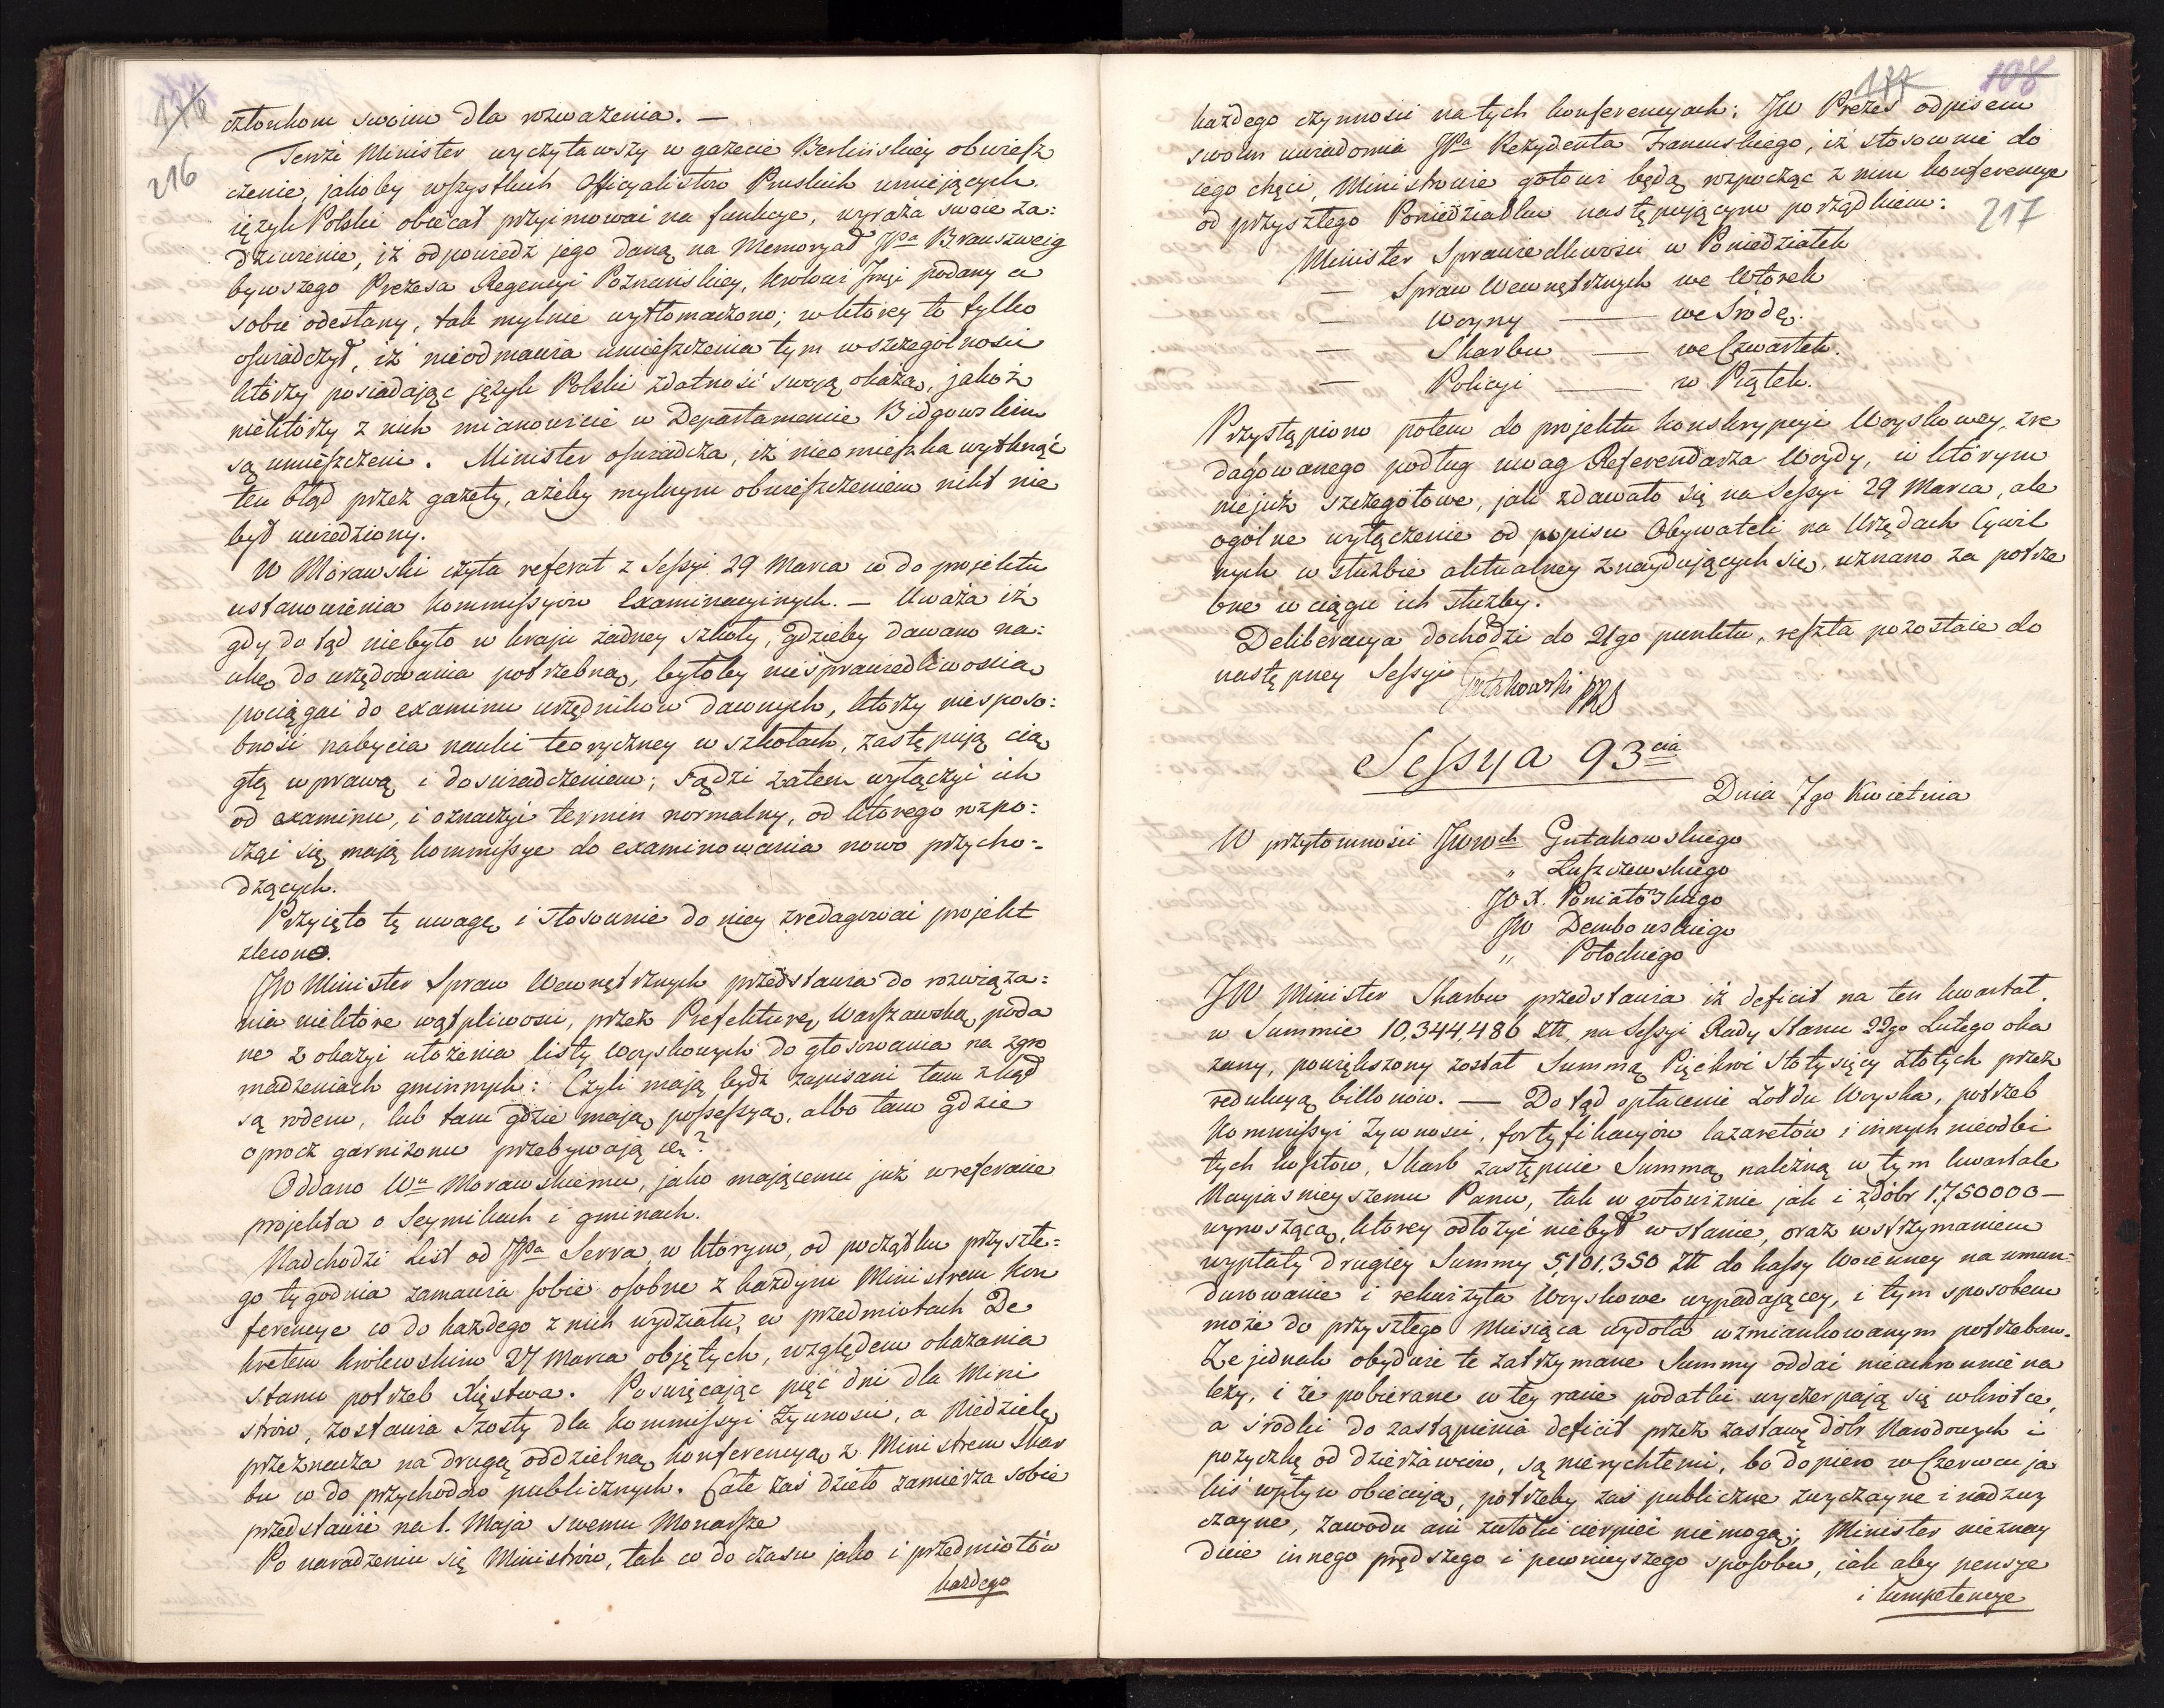 176
216
członkom swoim dla rozważenia. —
Tenże Minister wyczytawszy w gazecie Berlińskiey obwiesz
czenie, jakoby wszystkich Officyalistow Pruskich umiejących
ięzyk Polski obiecał przyimować na funkcye, wyraża swoie za:
dziwienie, iż odpowiedź jego daną na Memoryał JPa Brauszweig
bywszego Prezesa Regencyi Poznańskiey, Krolowi Jmci podany a
sobie odesłany, tak mylnie wytłomaczono; w ktorey to tylko
oświadczył, iż nieodmawia umieszczenia tym w szczególności
którzy posiadając język Polski zdatność swoją okażą, jakoż
niektórzy z nich mianowicie w Departamencie Bidgowskim
są umieszczeni. Minister oświadcza, iż nieomieszka wytknąć
ten błąd przez gazety, ażeby mylnym obwieszczeniem nikt nie
był uwiedziony.
W Morawski czyta referat z Sessyi 29 Marca co do projektu
ustanowienia Kommissyiow Examinacyinych. — Uważa iż
gdy do tąd niebyło w kraju żadney szkoły, gdzieby dawano na:
ukę do urzędowania potrzebną, byłoby niesprawiedliwością
pociągać do examinu urzędnikow dawnych, którzy niesposo:
bność nabycia nauki teoryczney w szkołach, zastępują cią
głą wprawą i doswiadczeniem; sądzi zatem wyłączyć ich
od examinu, i oznaczyć termin normalny, od ktorego rozpo:
cząć się mają kommissye do examinowania nowo przycho:
dzących.
Przyięto tę uwagę i stosownie do niey zredagować projekt
zlecono.
JW Minister Spraw Wewnętrznych przedstawia do rozwiąza:
nia niektóre wątpliwości, przez Prefekturę Warszawską poda
ne z okazyi ułożenia listy Woyskowych do głosowania na zgro
madzeniach gminnych: Czyli mają bydź zapisani tam zkąd
są rodem, lub tam gdzie mają possessyą, albo tam gdzie
oprocz garnizonu przebywają?
Oddano Wu Morawskiemu, jako mającemu już w referacie
projekta o Seymikach i gminach.
Nadchodzi List od JPa Serra, w ktorym, od początku przyszłe:
go tygodnia zamawia sobie osobne z każdym Ministrem Kon
ferencye co do każdego z nich wydziału, w przedmiotach De
kretem królewskim 27 Marca objętych, względem okazania
stanu potrzeb Xięstwa. Poswięcając pięć dni dla Mini
strów, zostawia Szosty dla Kommissyi Żywności, a Niedzielę
przeznacza na drugą oddzielną konferencyą z Ministrem Skar
bu co do przychodow publicznych. Całe zaś dzieło zamierza sobie
przedstawić na 1. Maja swemu Monarsze
Po naradzeniu się Ministrów, tak co do czasu jako i przedmiotów
każdego
177
108
217
każdego czynności na tych konferencyach; JW Prezes odpisem
swoim uwiadomia JPa Rezydenta Francuskiego, iż stosownie do
iego chęci, Ministrowie gotowi będą rozpocząć z nim konferencye
od przyszłego Poniedziałku następującym porządkiem:
Minister Sprawiedliwości w Poniedziałek
— Spraw Wewnętrznych we Wtorek
— Woyny — we Srodę.
— Skarbu — we Czwartek.
— Policyi — w Piątek.
Przystąpiono potem do projektu konskrypcyi Woyskowey, zre
dagowanego podług uwag Referendarza Woydy, w którym
nie już szczegółowe, jak zdawało się na Sessyi 29 Marca, ale
ogólne wyłączenie od popisu Obywateli na Urzędach Cywil
nych w służbie aktualney znaydujących się, uznano za potrze
bne w ciągu ich służby.
Deliberacya dochodzi do 21go punktu, reszta pozostaie do
następney Sessyi Gutakowski
Sessya 93cia
Dnia 7go Kwietnia
W przytomności JWWch Gutakowskiego
„ Łuszczewskiego
JO X. Poniatowskiego
JW Dembowskiego
„ Potockiego
JW Minister Skarbu przedstawia iż deficit na ten kwartał
w Summie 10,344,486 Złt. na Sessyi Rady Stanu 22go Lutego oka
zany, powiększony został Summą Pięciuset Stotysięcy złotych przez
redukcyą billonów. — Do tąd opłacenie żołdu Woyska, potrzeb
Kommissyi Żywności, fortyfikacyów lazaretów i innych nieodbi
tych kosztow, Skarb zastępuie Summą należną w tym kwartale
Nayiasnieyszemu Panu, tak w gotowiznie jak i z dóbr 1,750000 —
wynoszącą, ktorey odłożyć niebył w stanie, oraz wstrzymaniem
wypłaty drugiey Summy 5,101,350 Złt do kassy Woienney na umun:
durowanie i rekwizyta Woyskowe wypadającey, i tym sposobem
może do przyszłego Miesiąca wydoła wzmiankowanym potrzebom.
Że jednak obydwie te zatrzymane Summy oddać nieuchronnie na
leży, i że pobierane w tey racie podatki wyczerpają się wkrótce,
a środki do zastąpienia deficit przez zastawę dóbr Narodowych i
pożyczkę od dzierżawców, są nierychłemi, bo dopiero w Czerwcu ja
kiś wpływ obiecują, potrzeby zaś publiczne zwyczayne i nadzwy
czayne, zawodu ani zwłoki cierpieć niemogą; Minister nieznay
duie innego prędszego i pewnieyszego sposobu, iak aby pensye
i kompetencye